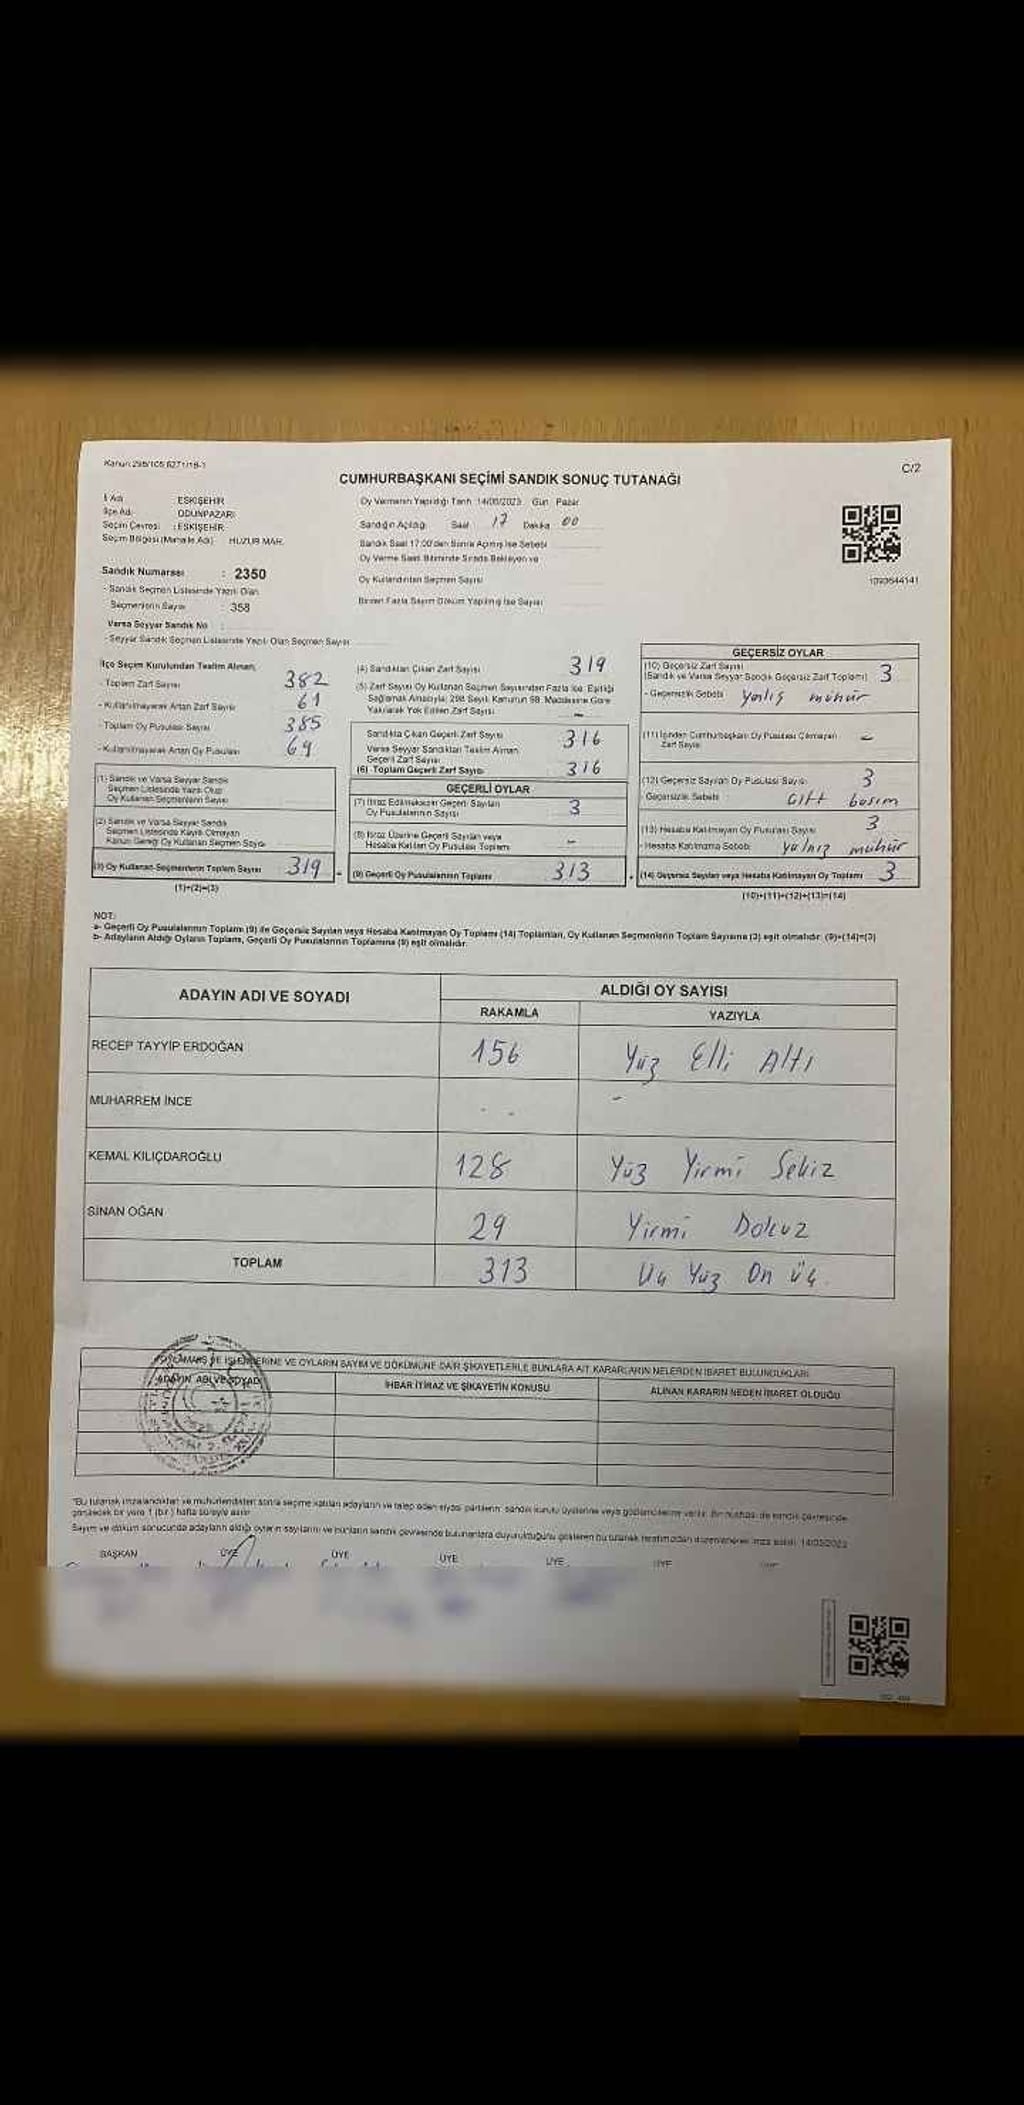 Kanun:298/105 6271/18-1
C/2
CUMHURBAŞKANI SEÇİMİ SANDIK SONUÇ TUTANAĞI
İl Adı : ESKİŞEHİR
İlçe Adı : ODUNPAZARI
Seçim Çevresi : ESKİŞEHİR
Seçim Bölgesi (Mahalle Adı) HUZUR MAH.
Oy Vermenin Yapıldığı Tarih 14/05/2023 Gün Pazar
Sandığın Açıldığı Saat 17 Dakika 00
Sandık Saat 17:00'den Sonra Açılmış İse Sebebi
Oy Verme Saati Bitiminde Sırada Bekleyen ve
Oy Kullandırılan Seçmen Sayısı
Birden Fazla Sayım Döküm Yapılmış İse Sayısı
1093644141
Sandık Numarası : 2350
- Sandık Seçmen Listesinde Yazılı Olan
Seçmenlerin Sayısı : 358
Varsa Seyyar Sandık No :
- Seyyar Sandık Seçmen Listesinde Yazılı Olan Seçmen Sayısı
İlçe Seçim Kurulundan Teslim Alınan;
- Toplam Zarf Sayısı 382
- Kullanılmayarak Artan Zarf Sayısı 61
- Toplam Oy Pusulası Sayısı 385
- Kullanılmayarak Artan Oy Pusulası 69
(1) Sandık ve Varsa Seyyar Sandık
Seçmen Listesinde Yazılı Olup
Oy Kullanan Seçmenlerin Sayısı
(2) Sandık ve Varsa Seyyar Sandık
Seçmen Listesinde Kayıtlı Olmayan
Kanun Gereği Oy Kullanan Seçmen Sayısı
(3) Oy Kullanan Seçmenlerin Toplam Sayısı 319
(1)+(2)=(3)
(4) Sandıktan Çıkan Zarf Sayısı 319
(5) Zarf Sayısı Oy Kullanan Seçmen Sayısından Fazla İse, Eşitliği
Sağlamak Amacıyla; 298 Sayılı Kanunun 98. Maddesine Göre
Yakılarak Yok Edilen Zarf Sayısı -
Sandıkta Çıkan Geçerli Zarf Sayısı 316
Varsa Seyyar Sandıktan Teslim Alınan
Geçerli Zarf Sayısı
(6) -Toplam Geçerli Zarf Sayısı 316
GEÇERLİ OYLAR
(7) İtiraz Edilmeksizin Geçerli Sayılan
Oy Pusulalarının Sayısı 3
(8) İtiraz Üzerine Geçerli Sayılan veya
Hesaba Katılan Oy Pusulası Toplamı -
(9) Geçerli Oy Pusulalarının Toplamı 313
GEÇERSİZ OYLAR
(10) Geçersiz Zarf Sayısı
(Sandık ve Varsa Seyyar Sandık Geçersiz Zarf Toplamı) 3
- Geçersizlik Sebebi yanlış mühür
(11) İçinden Cumhurbaşkanı Oy Pusulası Çıkmayan
Zarf Sayısı -
(12) Geçersiz Sayılan Oy Pusulası Sayısı 3
- Geçersizlik Sebebi Çift basım
(13) Hesaba Katılmayan Oy Pusulası Sayısı 3
- Hesaba Katılmama Sebebi yalnız mühür
(14) Geçersiz Sayılan veya Hesaba Katılmayan Oy Toplamı 3
(10)+(11)+(12)+(13)=(14)
NOT:
a- Geçerli Oy Pusulalarının Toplamı (9) ile Geçersiz Sayılan veya Hesaba Katılmayan Oy Toplamı (14) Toplamları, Oy Kullanan Seçmenlerin Toplam Sayısına (3) eşit olmalıdır. (9)+(14)=(3)
b- Adayların Aldığı Oyların Toplamı, Geçerli Oy Pusulalarının Toplamına (9) eşit olmalıdır.
ADAYIN ADI VE SOYADI
ALDIĞI OY SAYISI
RAKAMLA YAZIYLA
RECEP TAYYİP ERDOĞAN 156 Yüz Elli Altı
MUHARREM İNCE - - -
KEMAL KILIÇDAROĞLU 128 Yüz Yirmi Sekiz
SİNAN OĞAN 29 Yirmi Dokuz
TOPLAM 313 Üç Yüz On üç
İŞLEMLERİNE VE OYLARIN SAYIM VE DÖKÜMÜNE DAİR ŞİKAYETLERLE BUNLARA AİT KARARLARIN NELERDEN İBARET BULUNDUKLARI
ADAYIN ADI VE SOYADI İHBAR İTİRAZ VE ŞİKAYETİN KONUSU ALINAN KARARIN NEDEN İBARET OLDUĞU
"Bu tutanak imzalandıktan ve mühürlendikten sonra seçime katılan adayların ve talep eden siyasi partilerin, sandık kurulu üyelerine veya gözlemcilerine verilir. Bir nüshası de sandık çevresinde
görülecek bir yere 1 (bir) hafta süreyle asılır.
Sayım ve döküm sonucunda adayların aldığı oyların sayılarını ve bunların sandık çevresinde bulunanlara duyurulduğunu gösteren bu tutanak tarafımızdan düzenlenerek imza edildi. 14/05/2023
BAŞKAN ÜYE ÜYE ÜYE ÜYE ÜYE ÜYE